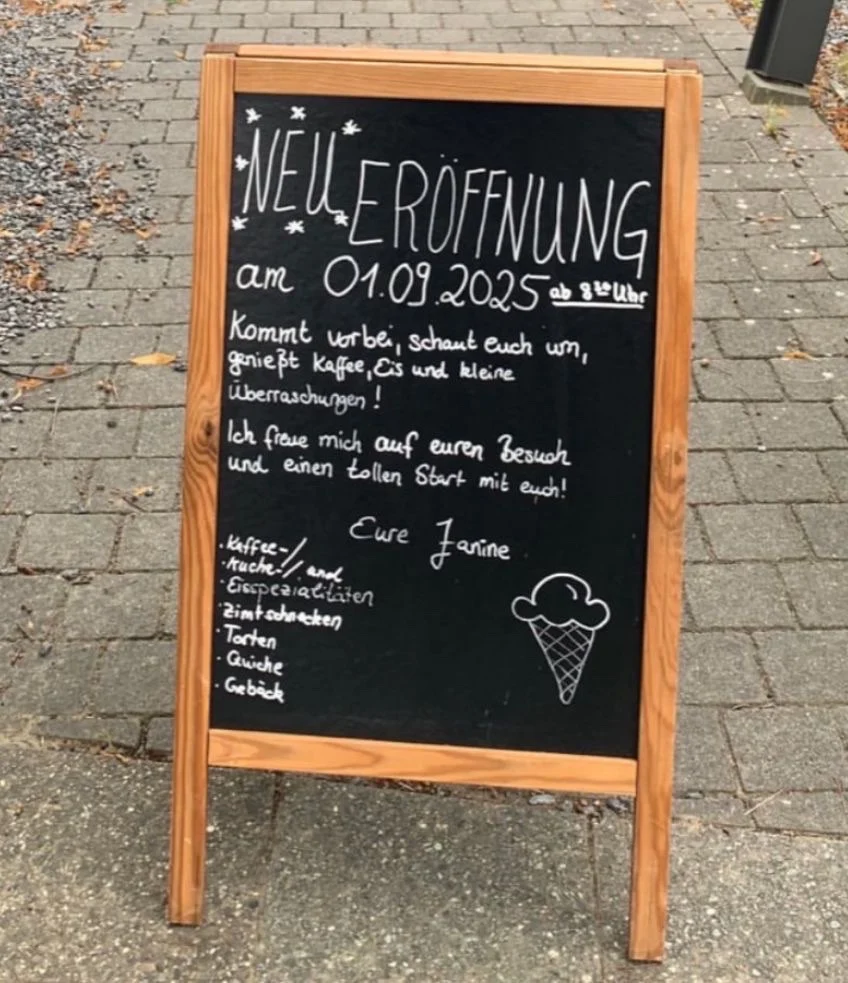 NEU ERÖFFNUNG
am 01.09.2025 ab 8³⁰ Uhr
Kommt vorbei, schaut euch um,
genießt Kaffee, Eis und kleine
Überraschungen!
Ich freue mich auf euren Besuch
und einen tollen Start mit euch!
Eure Janine
· Kaffee-/
· Kuche-/ and
· Eisspezialitäten
· Zimtschnecken
· Torten
· Quiche
· Gebäck